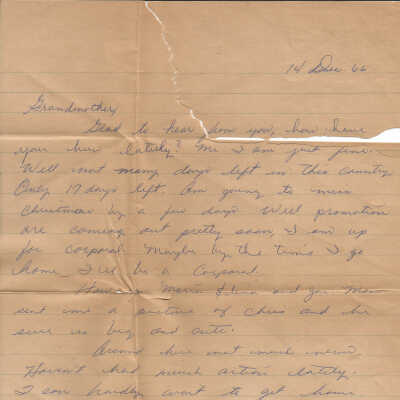 14 Dec 66
Grandmother,
Glad to hear from you, how have
you been latisly? Me I am just fine.
Well not many days left in this country
Only 17 days left. Am going to miss
Christmas by a few days. Well promotion
are coming out pretty soon, I am up
for corporal. Maybe by the time I go
home I'll be a Corporal.
How is Maria &
sent me a picture of Chris and he
sure is big and cute.
Around here not much news,
Haven't had much action lately.
I can hardly wait to get home